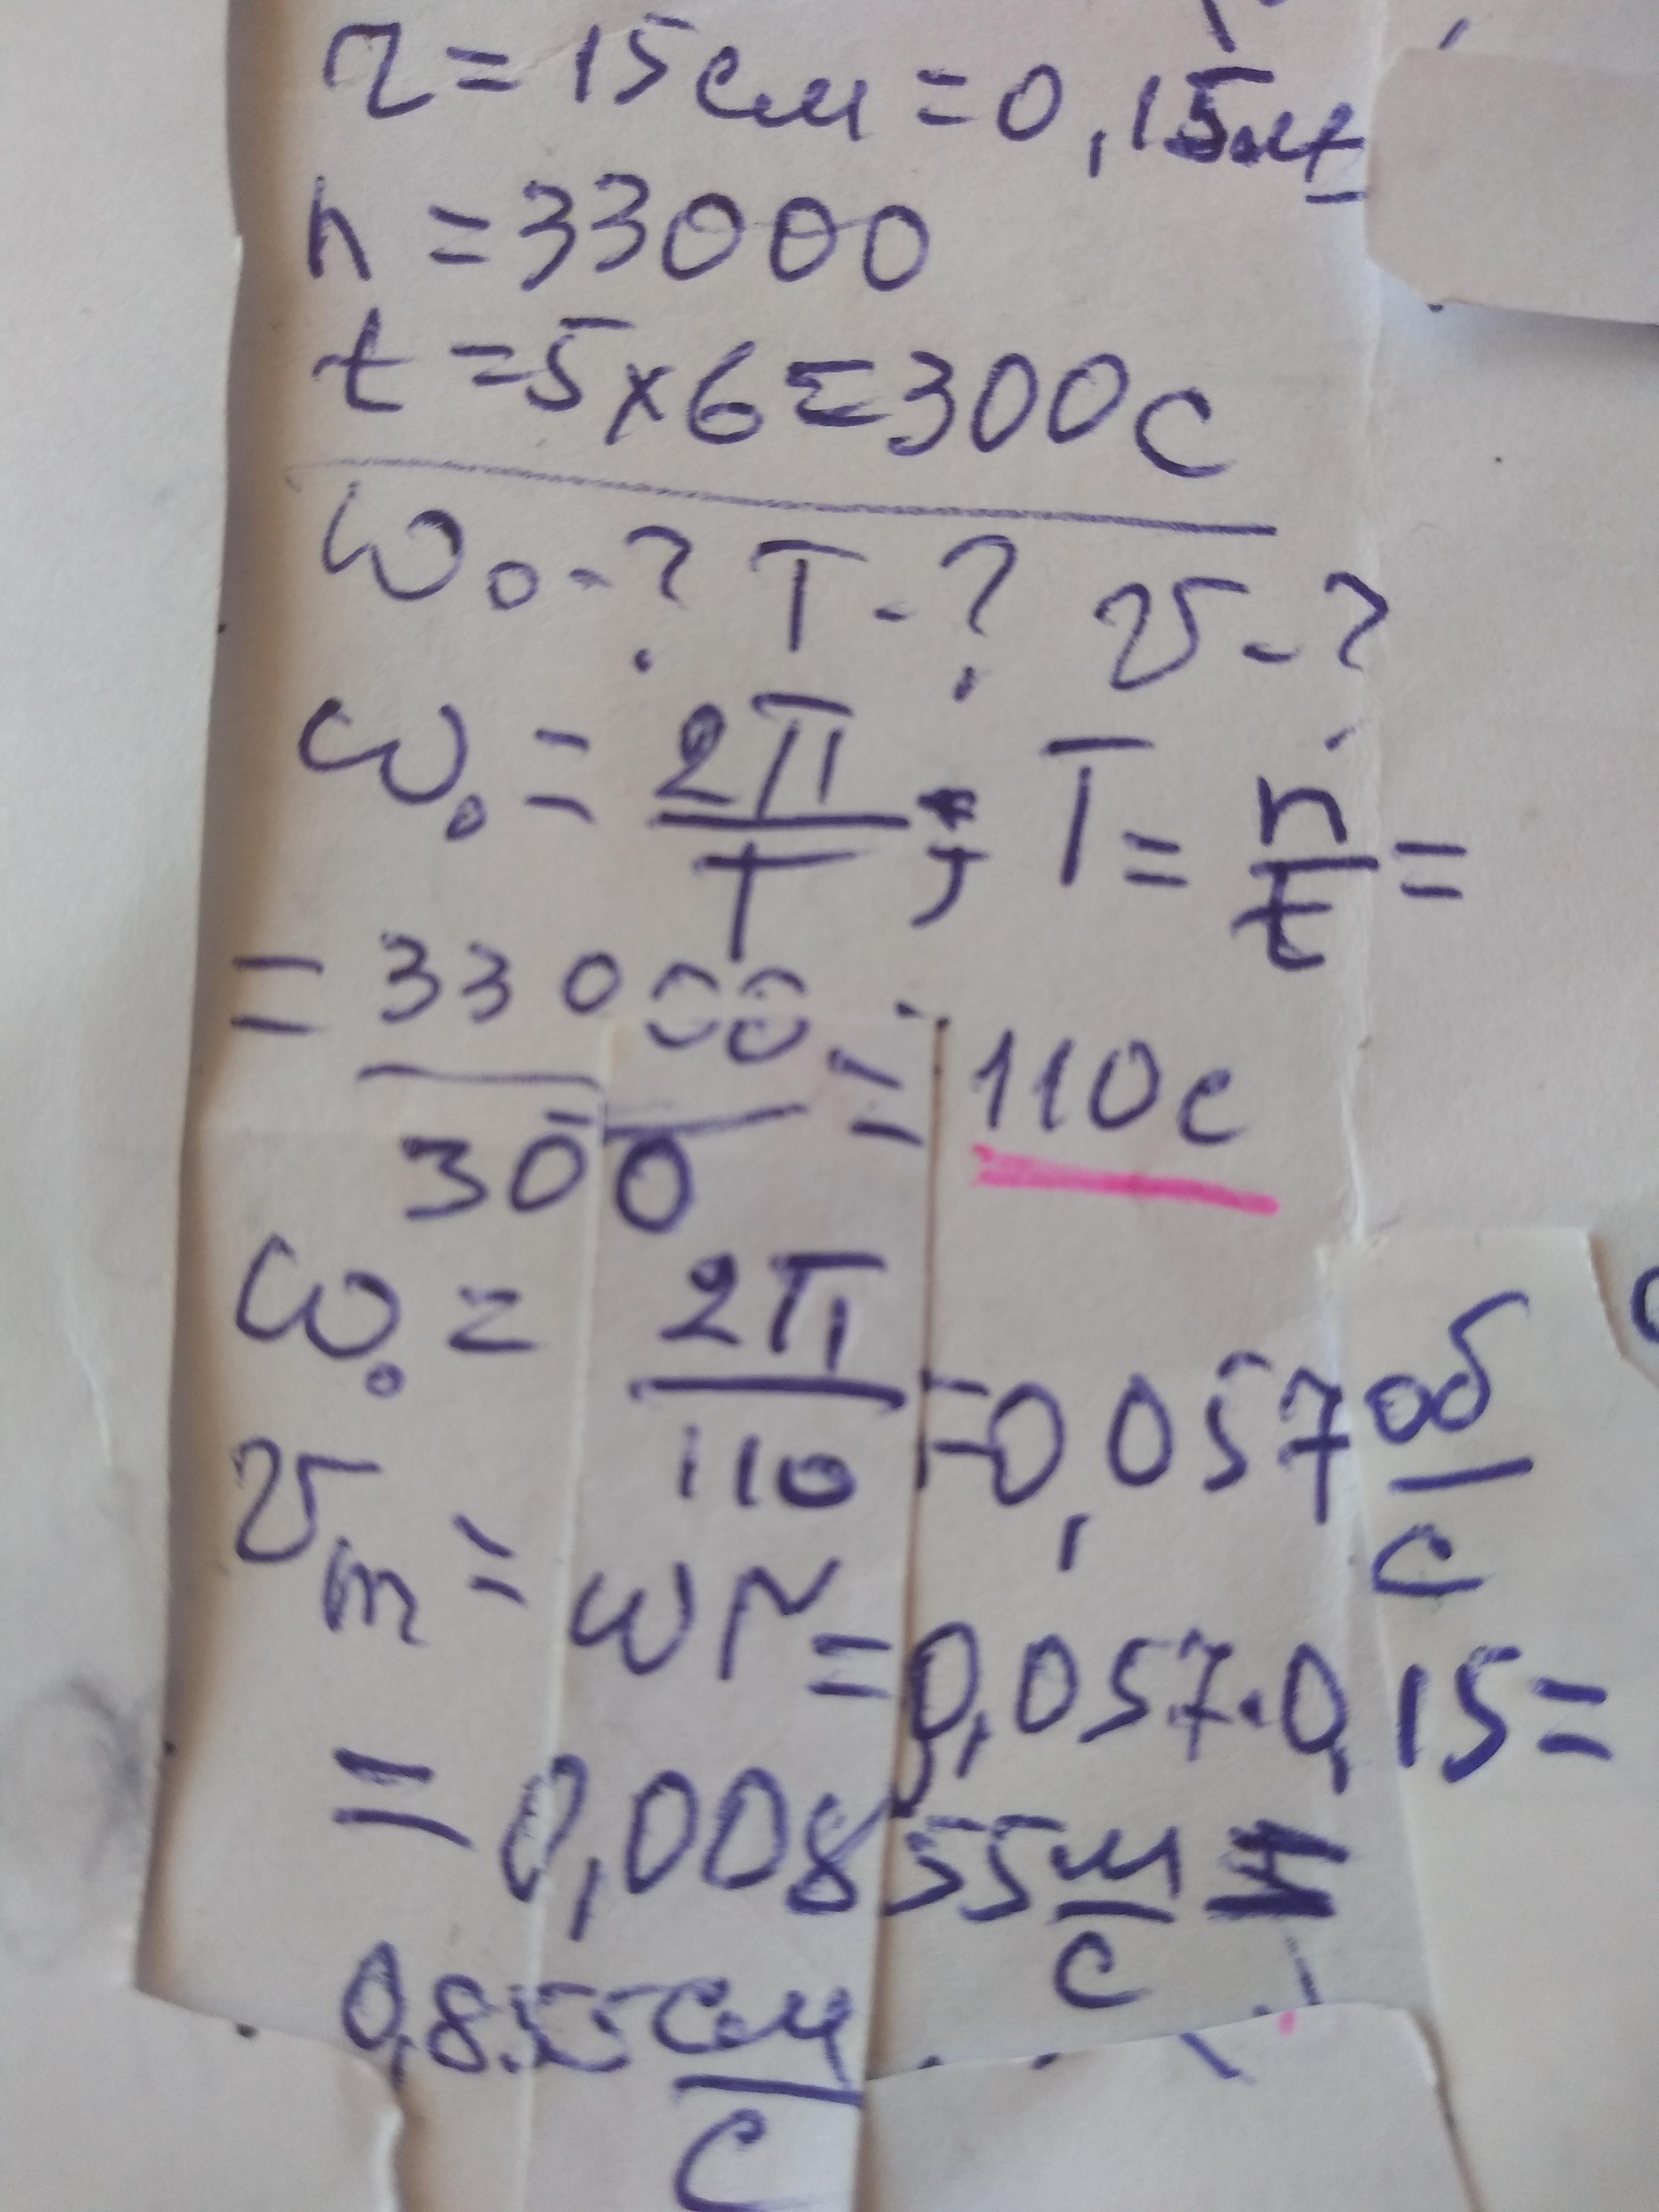 r = 15 см = 0,15м
n = 33000
t = 5 × 6 = 300 с
ω₀ - ? T - ? v - ?
ω₀ = 2π/T ; T = n/t =
= 33000/300 = 110 с
ω₀ = 2π/110 = 0,057 об/с
vₘ = ωr = 0,057 · 0,15 =
= 0,00855 м/с =
0,855 см/с